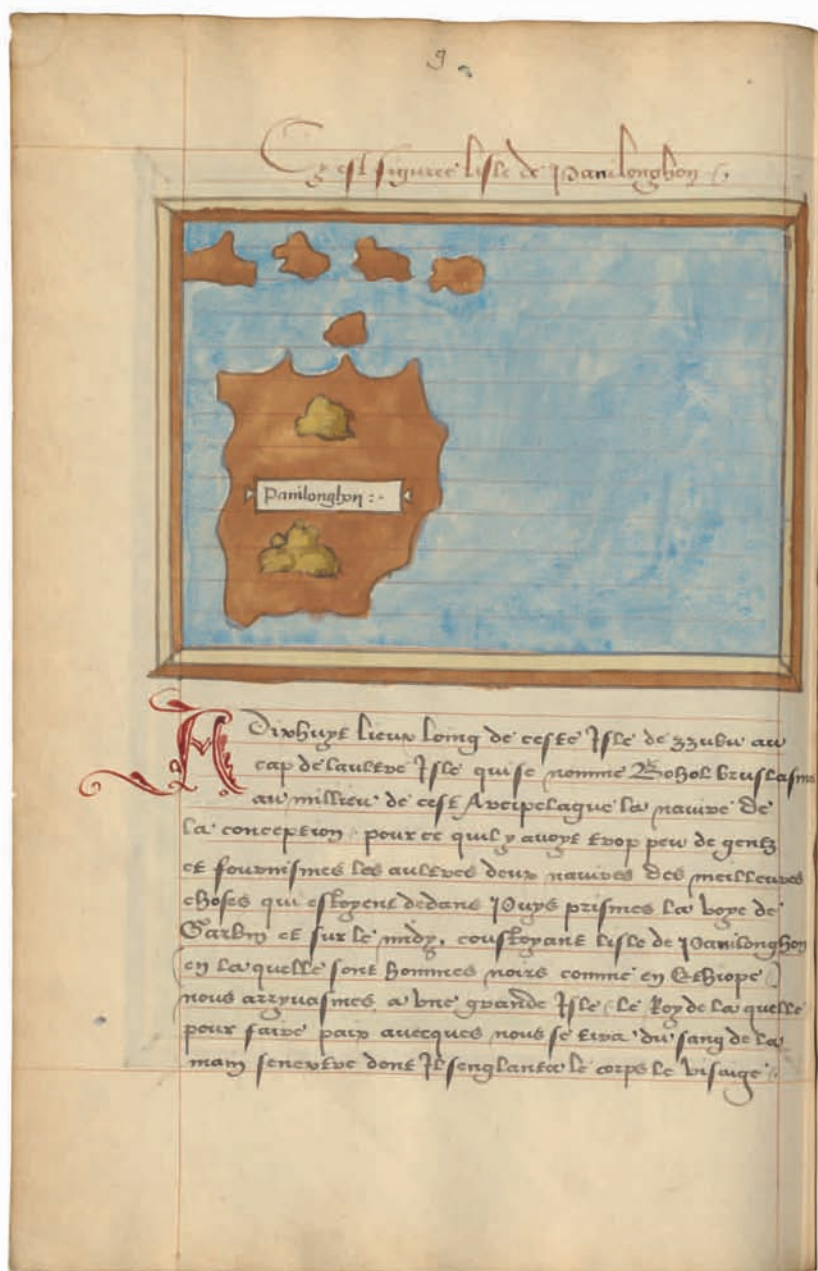 9
Cy est figuree lisle de Panilonghon
Panilonghon :-
A Dixhuyt lieux loing de ceste Isle de zzubu au
cap de laultre Isle qui se nomme Bohol bruslasmes
au millieu de cest Arcipelague la navire de
la conception pour ce quil y avoyt trop peu de gentz
et fournismes les aultres deux navires des meilleures
choses qui estoyent dedans Puys prismes la voye de
Garbin et sur le midy, coustoyant lisle de Panilonghon
(en la quelle sont hommes noirs comme en Ethiope)
nous arryvasmes a une grande Isle (le Roy de la quelle
pour faire paix avecques nous se tira du sang de la
main senextre dont Il senglanta le corps le visaige